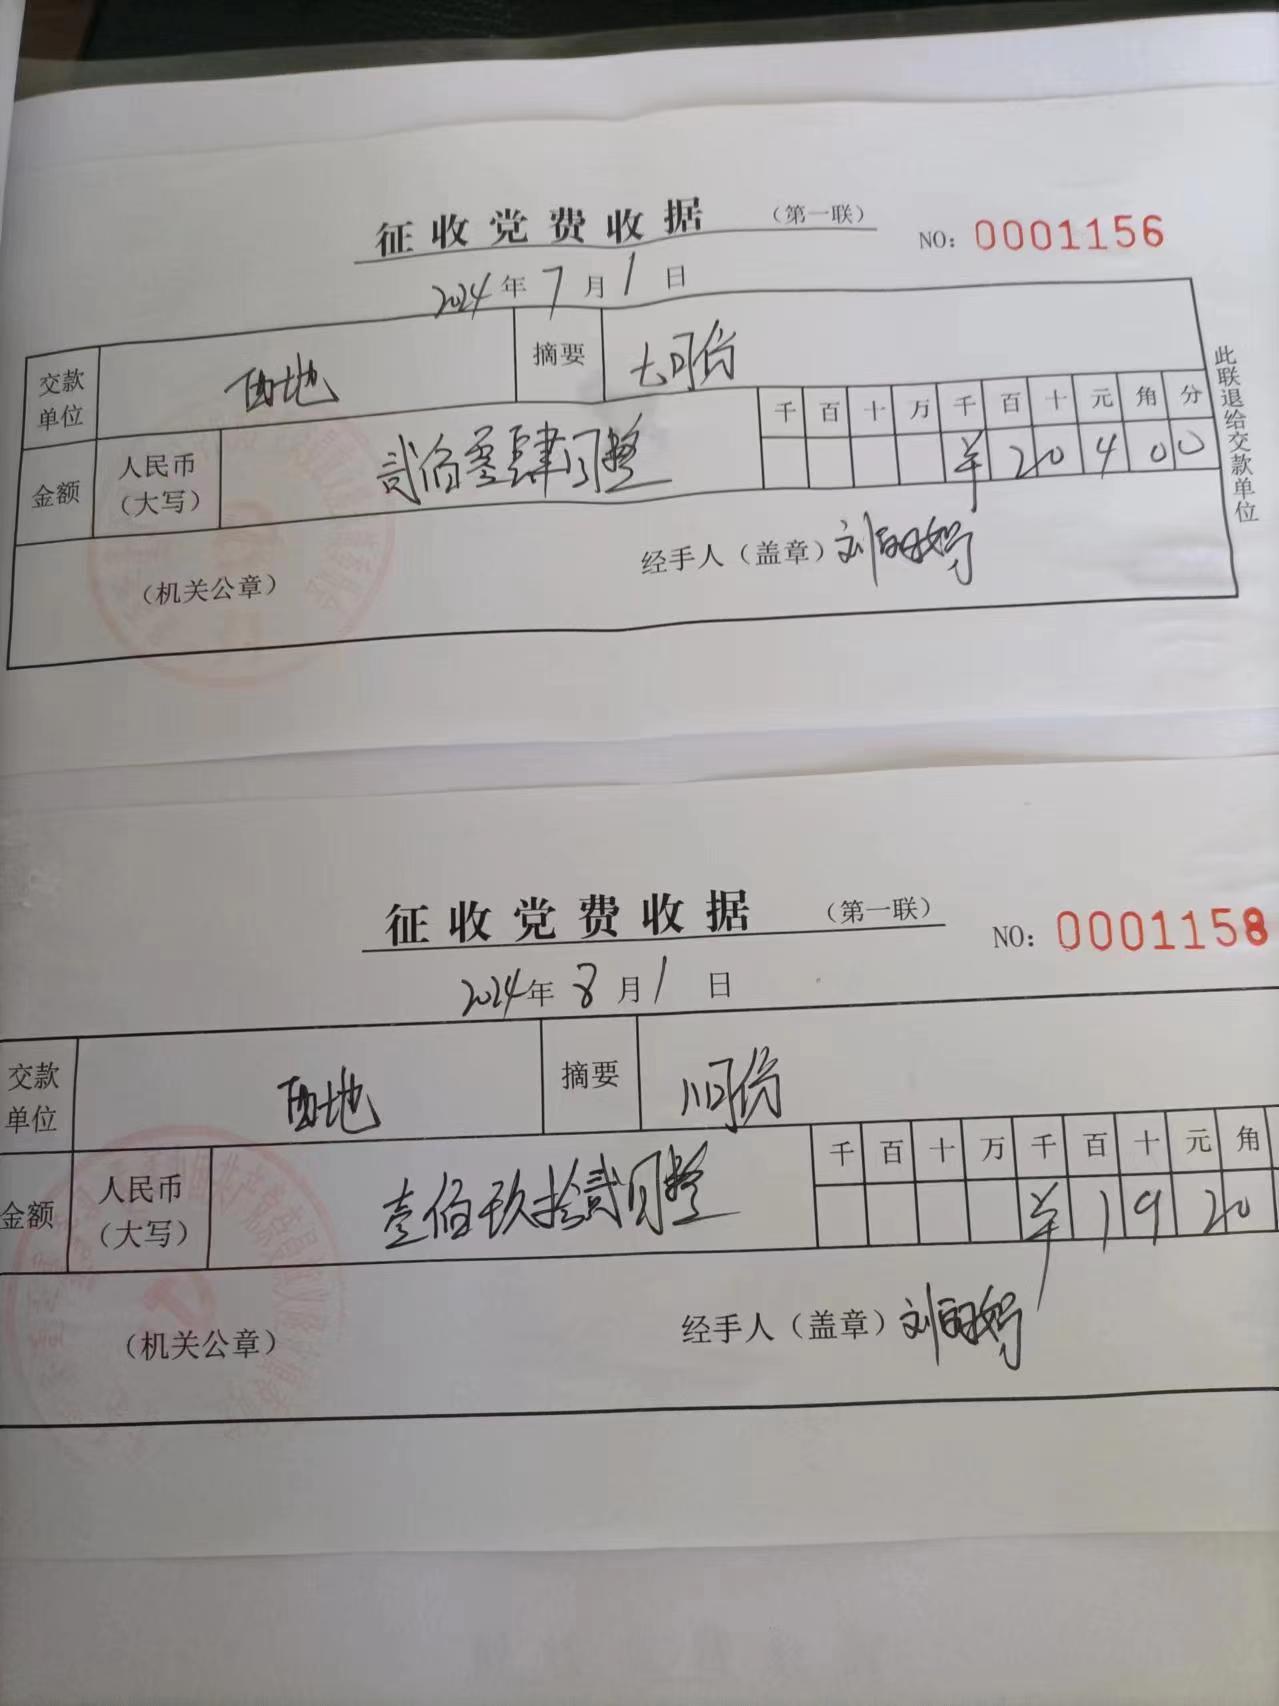 征收党费收据 （第一联） NO: 0001156
2024年7月1日
交款单位 西地 摘要 七月份
千 百 十 万 千 百 十 元 角 分
金额 人民币（大写） 贰佰零肆元整 ¥ 2 0 4 0 0
（机关公章） 经手人（盖章）
此联退给交款单位
征收党费收据 （第一联） NO: 0001158
2024年8月1日
交款单位 西地 摘要 八月份
千 百 十 万 千 百 十 元 角
金额 人民币（大写） 壹佰玖拾贰元整 ¥ 1 9 2 0
（机关公章） 经手人（盖章）